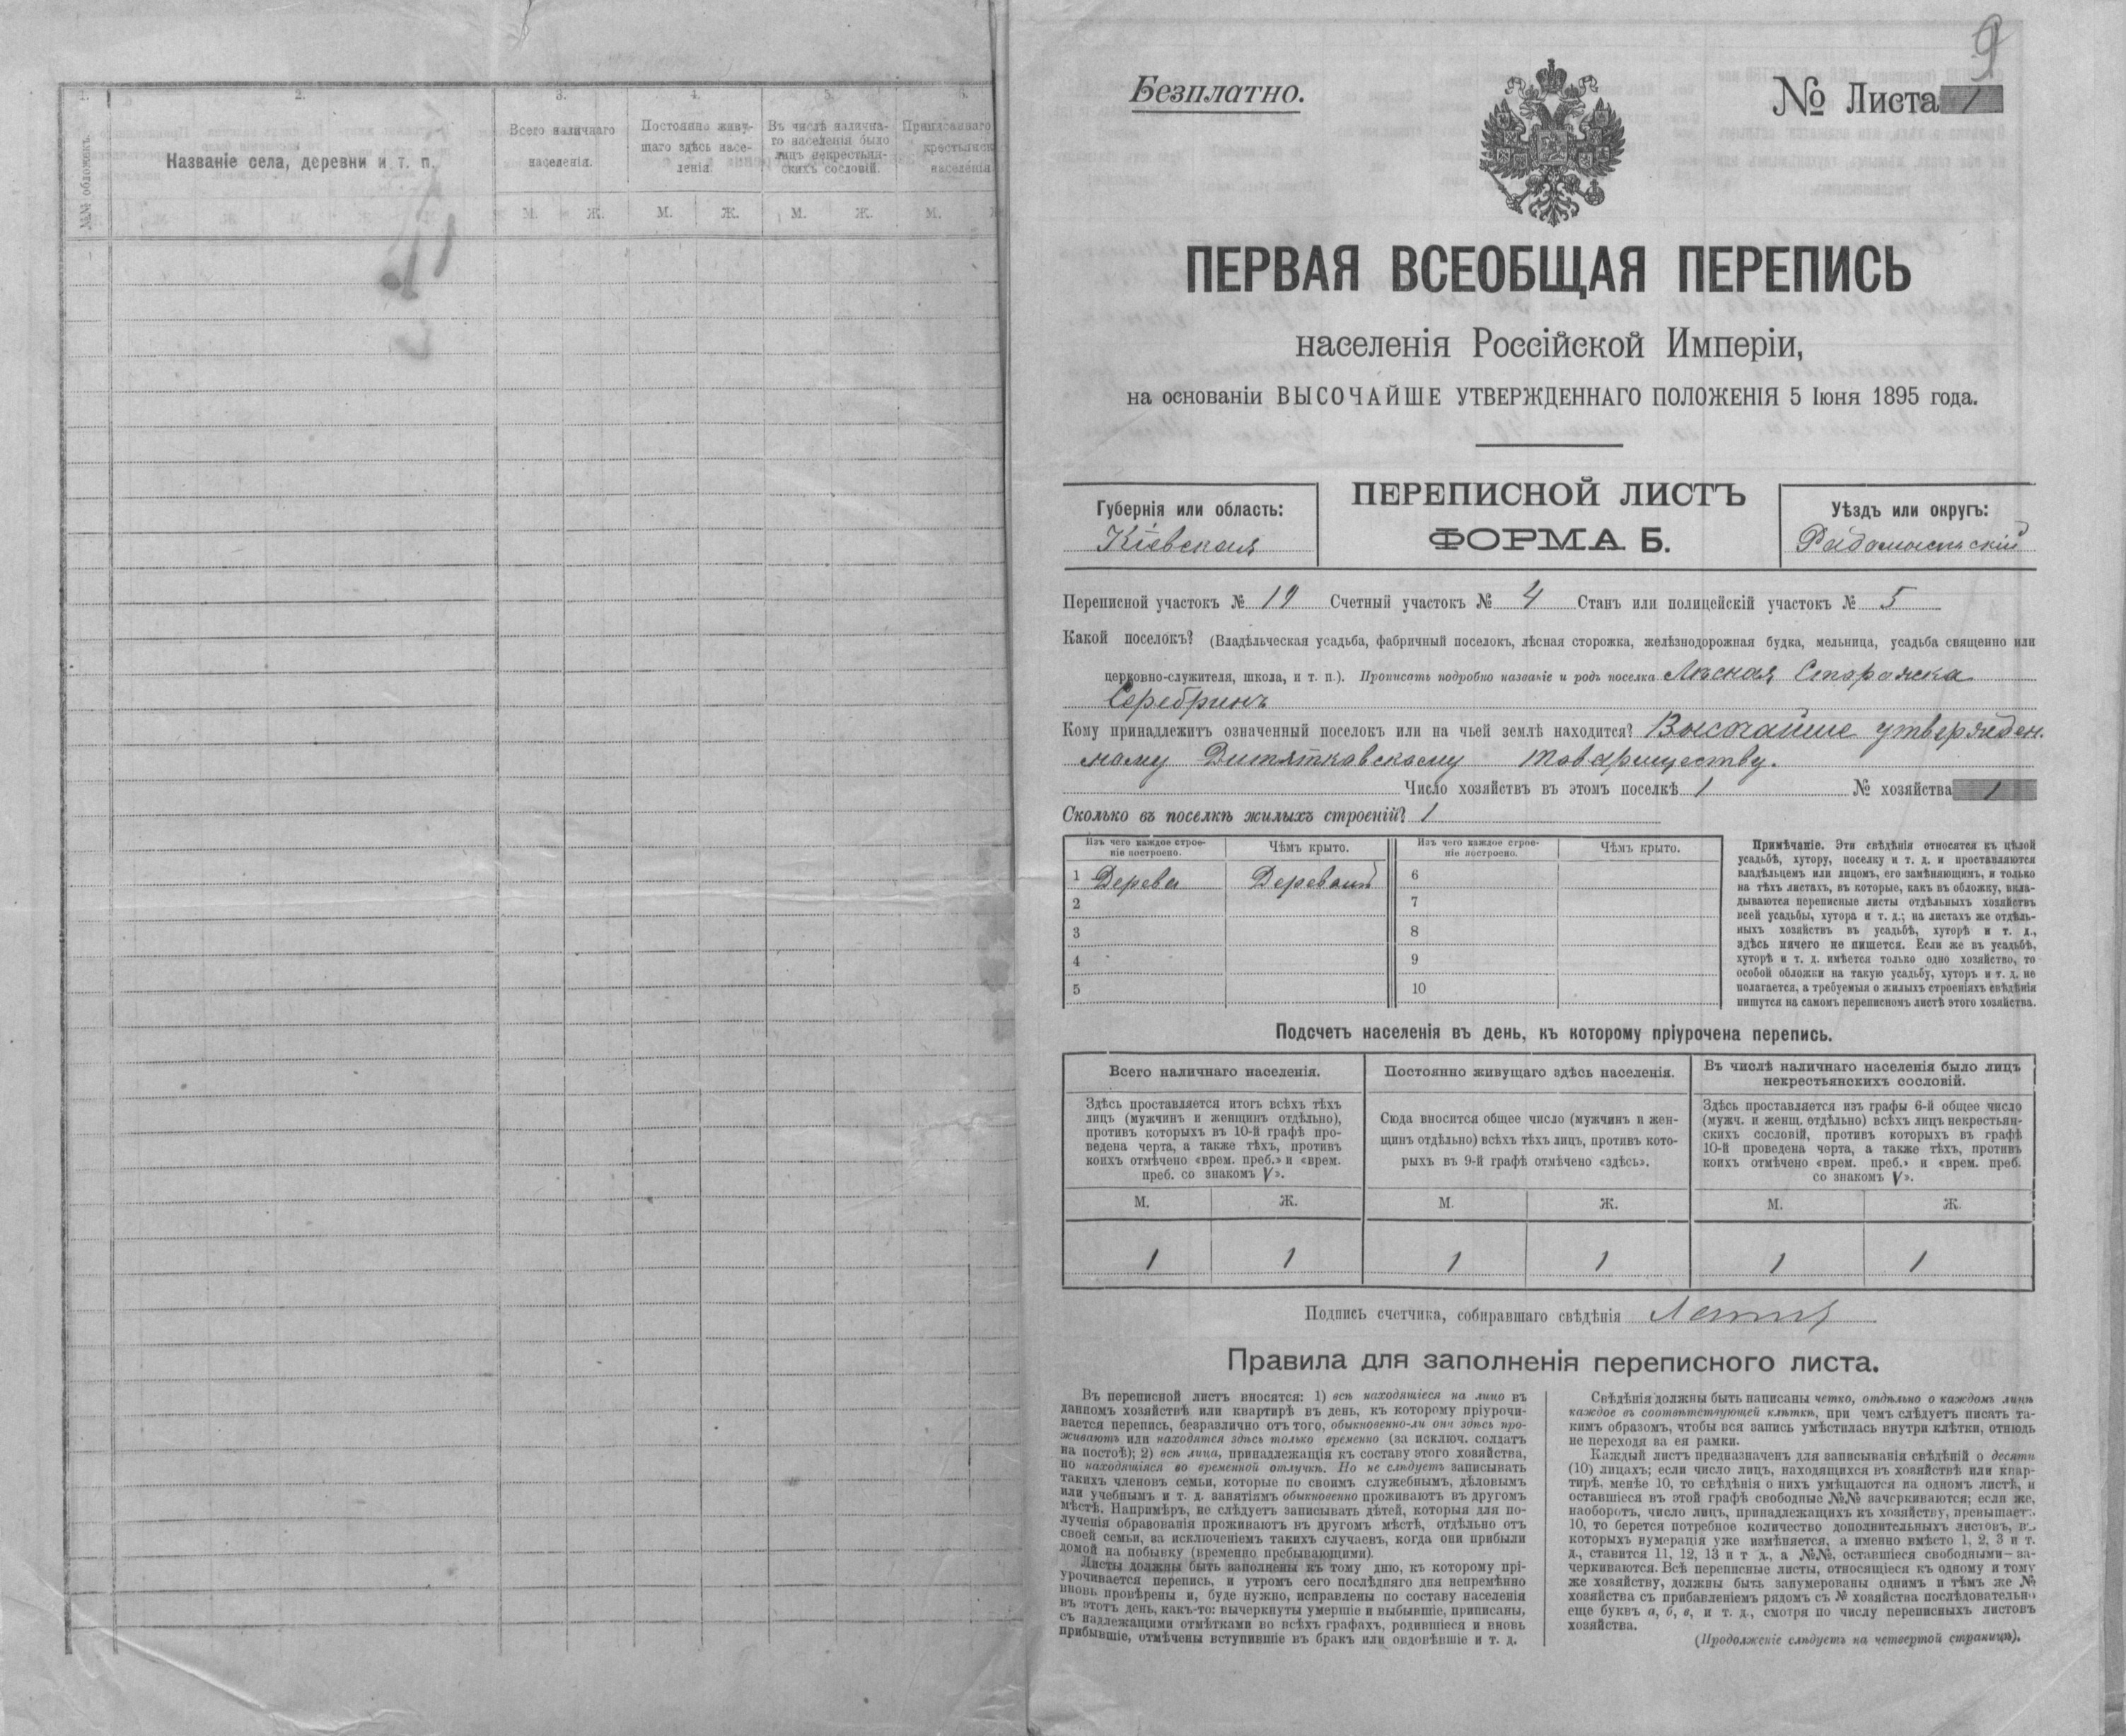 1.
2.
3.
4.
5.
№№ обложекъ.
Названіе села, деревни и т. п.
Всего наличнаго
населенія.
Постоянно живу-
щаго здѣсь насе-
ленія.
Въ числѣ налична-
го населенія было
лицъ некрестьян-
скихъ сословій.
Приписаннаго
крестьянск
населенія
М. Ж. М. Ж. М. Ж. М.
9
Безплатно.
№ Листа 1
ПЕРВАЯ ВСЕОБЩАЯ ПЕРЕПИСЬ
населенія Россійской Имперіи,
на основаніи ВЫСОЧАЙШЕ УТВЕРЖДЕННАГО ПОЛОЖЕНІЯ 5 Іюня 1895 года.
Губернія или область:
Кіевская
ПЕРЕПИСНОЙ ЛИСТЪ
ФОРМА Б.
Уѣздъ или округъ:
Радомысльскій
Переписной участокъ № 19 Счетный участокъ № 4 Станъ или полицейскій участокъ № 5
Какой поселокъ? (Владѣльческая усадьба, фабричный поселокъ, лѣсная сторожка, желѣзнодорожная будка, мельница, усадьба священно или
церковно-служителя, школа, и т. п.). Прописать подробно названіе и родъ поселка Лѣсная Сторожка
Серебринъ
Кому принадлежитъ означенный поселокъ или на чьей землѣ находится? Высочайше утвержден.
ному Дитятковскому товариществу.
Число хозяйствъ въ этомъ поселкѣ 1 № хозяйства 1
Сколько въ поселкѣ жилыхъ строеній? 1
Изъ чего каждое строе-
ніе построено.
Чѣмъ крыто.
Изъ чего каждое строе-
ніе построено.
Чѣмъ крыто.
1 Дерева Деревомъ 6
2 7
3 8
4 9
5 10
Примѣчаніе. Эти свѣдѣнія относятся къ цѣлой
усадьбѣ, хутору, поселку и т. д. и проставляются
владѣльцемъ или лицомъ, его замѣняющимъ, и только
на тѣхъ листахъ, въ которые, какъ въ обложку, вкла-
дываются переписные листы отдѣльныхъ хозяйствъ
всей усадьбы, хутора и т. д.; на листахъ же отдѣль-
ныхъ хозяйствъ въ усадьбѣ, хуторѣ и т. д.,
здѣсь ничего не пишется. Если же въ усадьбѣ,
хуторѣ и т. д. имѣется только одно хозяйство, то
особой обложки на такую усадьбу, хуторъ и т. д. не
полагается, а требуемыя о жилыхъ строеніяхъ свѣдѣнія
пишутся на самомъ переписномъ листѣ этого хозяйства.
Подсчетъ населенія въ день, къ которому пріурочена перепись.
Всего наличнаго населенія.
Здѣсь проставляется итогъ всѣхъ тѣхъ
лицъ (мужчинъ и женщинъ отдѣльно),
противъ которыхъ въ 10-й графѣ про-
ведена черта, а также тѣхъ, противъ
коихъ отмѣчено «врем. преб.» и «врем.
преб. со знакомъ V».
Постоянно живущаго здѣсь населенія.
Сюда вносится общее число (мужчинъ и жен-
щинъ отдѣльно) всѣхъ тѣхъ лицъ, противъ кото-
рыхъ въ 9-й графѣ отмѣчено «здѣсь».
Въ числѣ наличнаго населенія было лицъ
некрестьянскихъ сословій.
Здѣсь проставляется изъ графы 6-й общее число
(мужч. и женщ. отдѣльно) всѣхъ лицъ некрестьян-
скихъ сословій, противъ которыхъ въ графѣ
10-й проведена черта, а также тѣхъ, противъ
коихъ отмѣчено «врем. преб.» и «врем. преб.
со знакомъ V».
М. Ж. М. Ж. М. Ж.
1 1 1 1 1 1
Подпись счетчика, собиравшаго свѣдѣнія
Правила для заполненія переписного листа.
Въ переписной листъ вносятся: 1) всѣ находящіеся на лицо въ
данномъ хозяйствѣ или квартирѣ въ день, къ которому пріурочи-
вается перепись, безразлично отъ того, обыкновенно-ли они здѣсь про-
живаютъ или находятся здѣсь только временно (за исключ. солдатъ
на постоѣ); 2) всѣ лица, принадлежащія къ составу этого хозяйства,
но находящіяся во временной отлучкѣ. Но не слѣдуетъ записывать
такихъ членовъ семьи, которые по своимъ служебнымъ, дѣловымъ
или учебнымъ и т. д. занятіямъ обыкновенно проживаютъ въ другомъ
мѣстѣ. Напримѣръ, не слѣдуетъ записывать дѣтей, которыя для по-
лученія образованія проживаютъ въ другомъ мѣстѣ, отдѣльно отъ
своей семьи, за исключеніемъ такихъ случаевъ, когда они прибыли
домой на побывку (временно пребывающими).
Листы должны быть заполнены къ тому дню, къ которому прі-
урочивается перепись, и утромъ сего послѣдняго дня непремѣнно
вновь провѣрены и, буде нужно, исправлены по составу населенія
въ этотъ день, какъ-то: вычеркнуты умершіе и выбывшіе, приписаны,
съ надлежащими отмѣтками во всѣхъ графахъ, родившіеся и вновь
прибывшіе, отмѣчены вступившіе въ бракъ или овдовѣвшіе и т. д.
Свѣдѣнія должны быть написаны четко, отдѣльно о каждомъ лицѣ
каждое въ соотвѣтствующей клѣткѣ, при чемъ слѣдуетъ писать та-
кимъ образомъ, чтобы вся запись умѣстилась внутри клѣтки, отнюдь
не переходя за ея рамки.
Каждый листъ предназначенъ для записыванія свѣдѣній о десяти
(10) лицахъ; если число лицъ, находящихся въ хозяйствѣ или квар-
тирѣ, менѣе 10, то свѣдѣнія о нихъ умѣщаются на одномъ листѣ, и
оставшіеся въ этой графѣ свободные №№ зачеркиваются; если же,
наоборотъ, число лицъ, принадлежащихъ къ хозяйству, превышаетъ
10, то берется потребное количество дополнительныхъ листовъ, въ
которыхъ нумерація уже измѣняется, а именно вмѣсто 1, 2, 3 и т.
д., ставится 11, 12, 13 и т д., а №№, оставшіеся свободными — за-
черкиваются. Всѣ переписные листы, относящіеся къ одному и тому
же хозяйству, должны быть занумерованы однимъ и тѣмъ же №
хозяйства съ прибавленіемъ рядомъ съ № хозяйства послѣдовательно
еще буквъ а, б, в, и т. д., смотря по числу переписныхъ листовъ
хозяйства.
(Продолженіе слѣдуетъ на четвертой страницѣ).